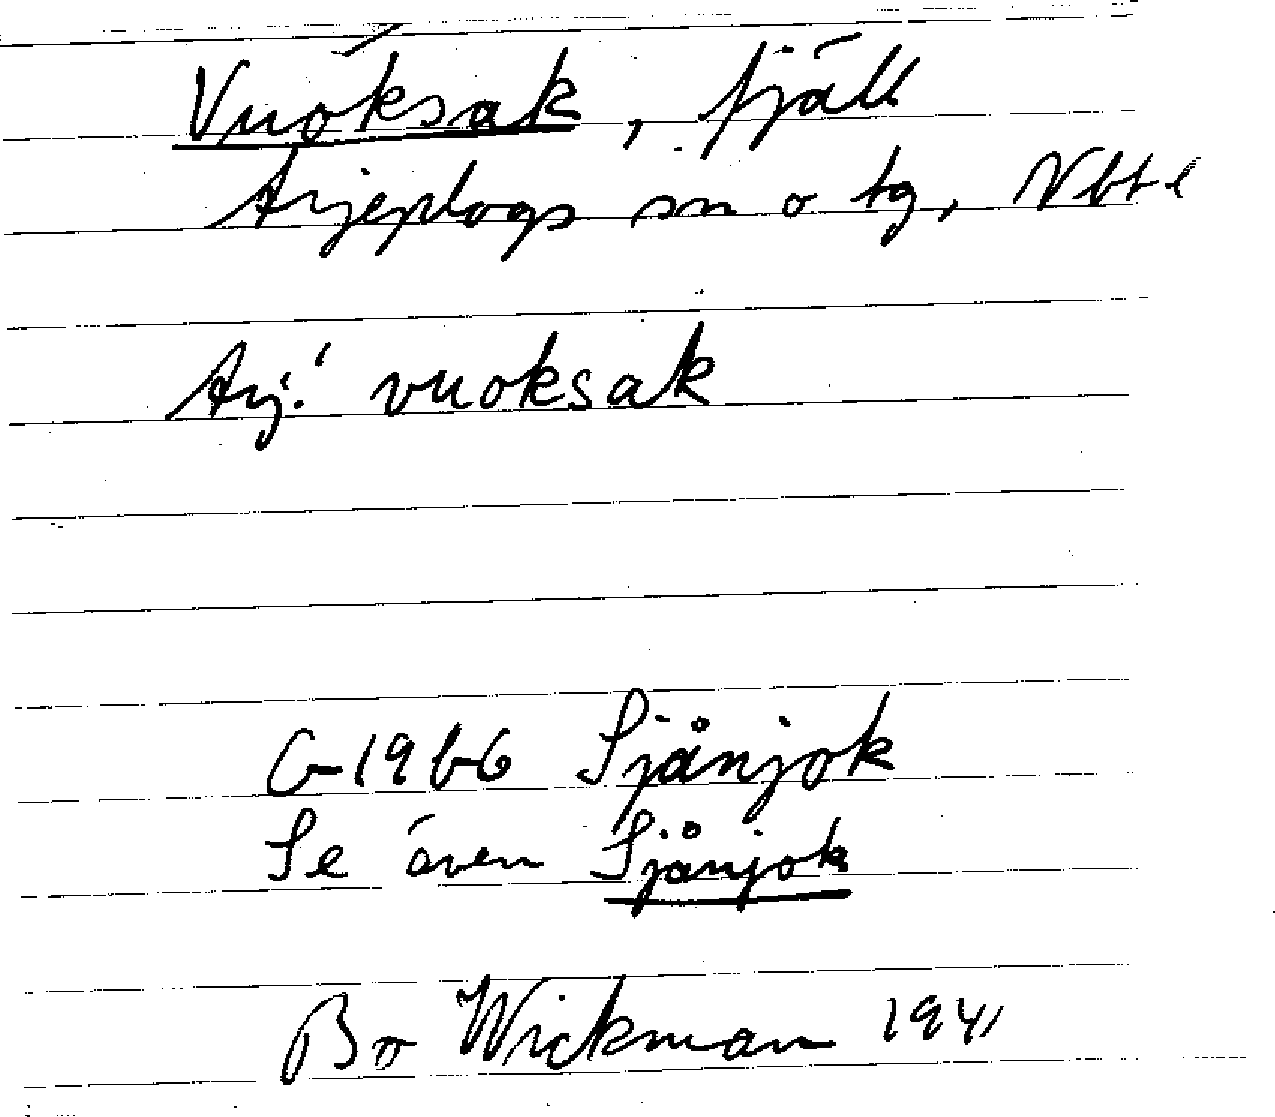 Vuoksak, fjäll
Arjeplogs sn o tg, Nbt l
Arj. vuoksak
G-1966 Sjånjok
Se även Sjånjok
Bo Wickman 1941